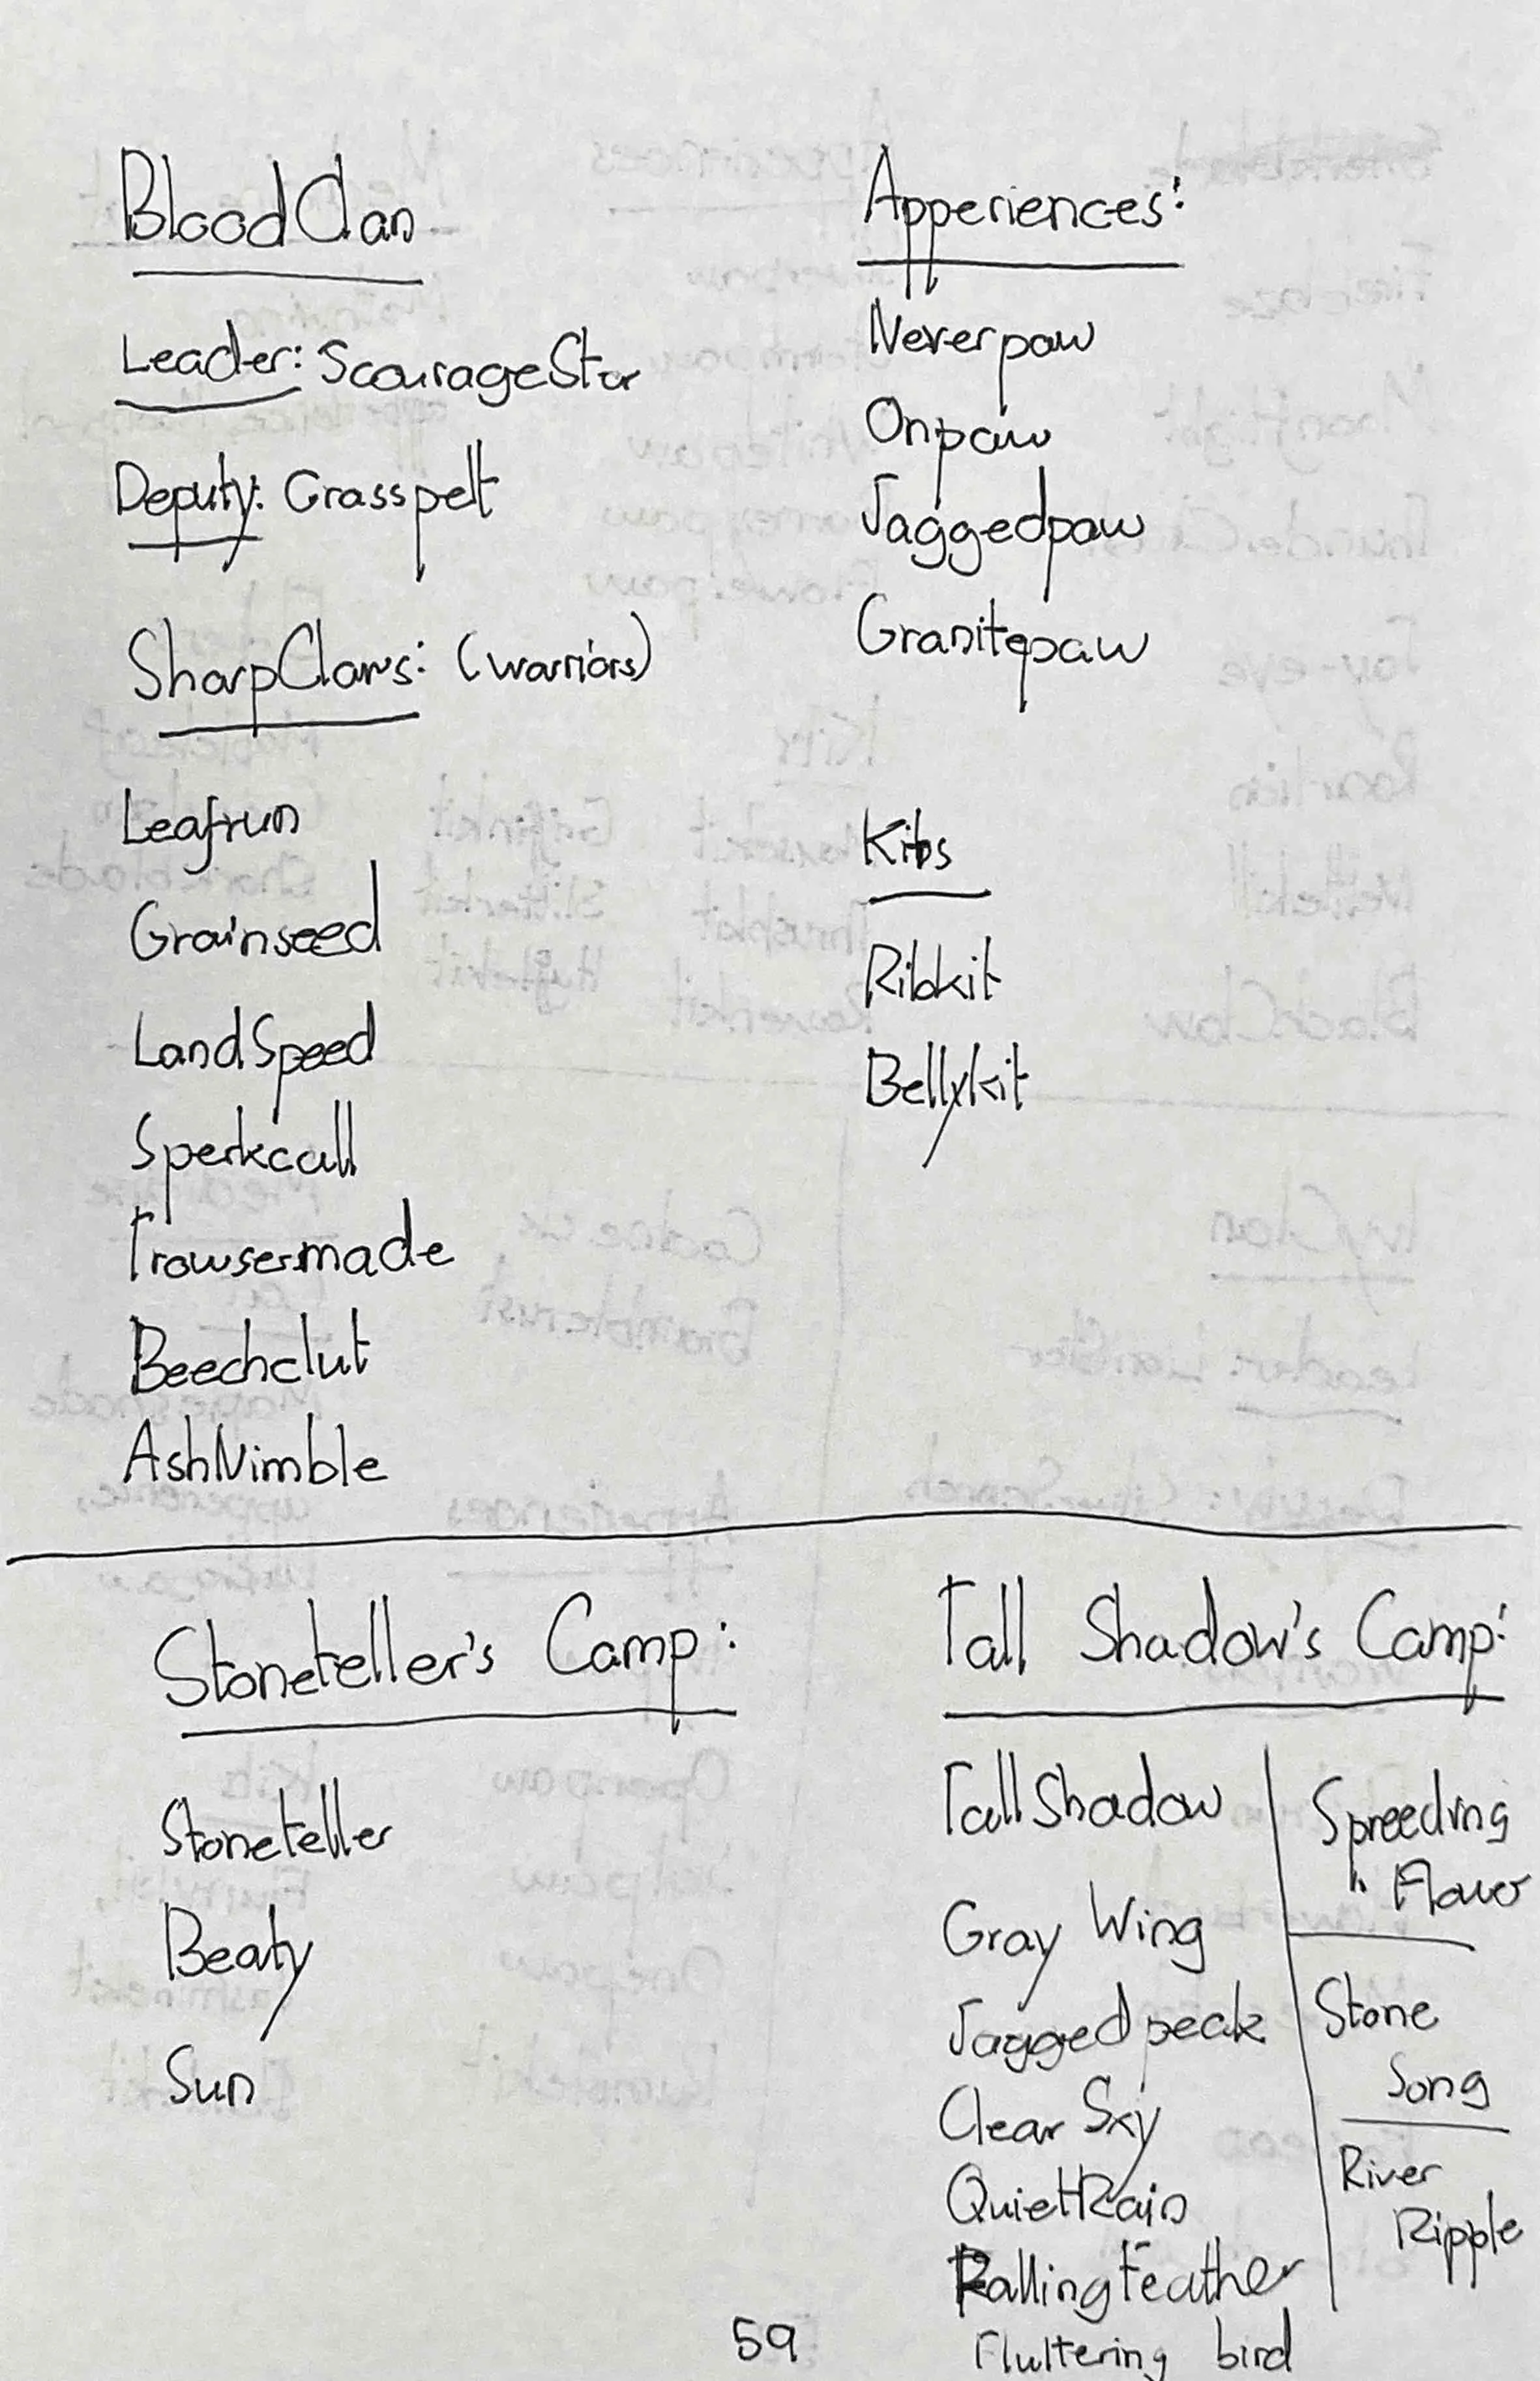 BloodClan
Leader: ScourageStar
Deputy: Grasspelt
SharpClaws: (warriors)
Leafrun
Grainseed
LandSpeed
Sperkcall
Trowsermade
Beechclut
AshNimble
Apperiences:
Neverpaw
Onpaw
Jaggedpaw
Granitepaw
Kits
Ribkit
Bellykit
Stoneteller's Camp:
Stoneteller
Beaty
Sun
Tall Shadow's Camp:
TallShadow
Gray Wing
Jagged peak
Clear Sky
QuietRain
Falling Feather
Fluttering bird
Spreeding
Flower
Stone
Song
River
Ripple
59